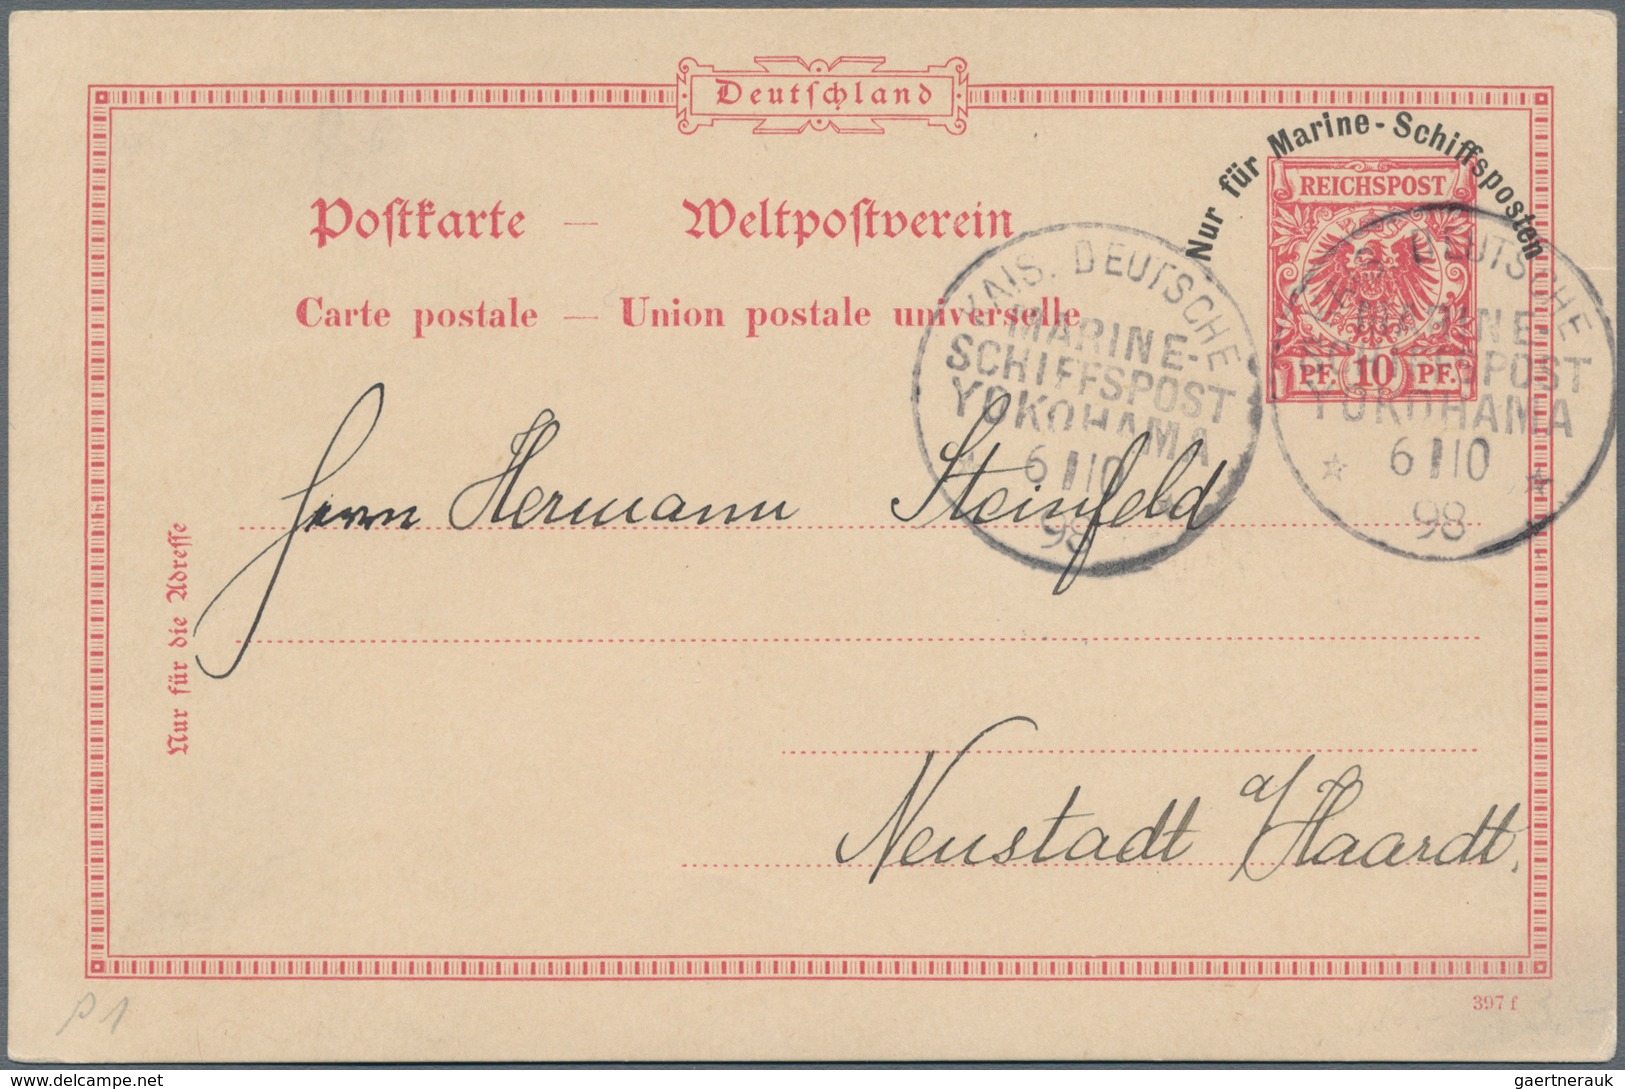 Deutschland
Nur für Marine-Schiffsposten
REICHSPOST
PF. 10 PF.
Postkarte — Weltpostverein
Carte postale — Union postale universelle
KAIS. DEUTSCHE
MARINE-
SCHIFFSPOST
YOKOHAMA
6 10
98
DEUTSCHE
MARINE-
SCHIFFSPOST
YOKOHAMA
6 10
98
Herrn Hermann Steinfeld
Nur für die Adresse
Neustadt a/Haardt.
397 f
P 1
www.delcampe.net
gaertnerauk